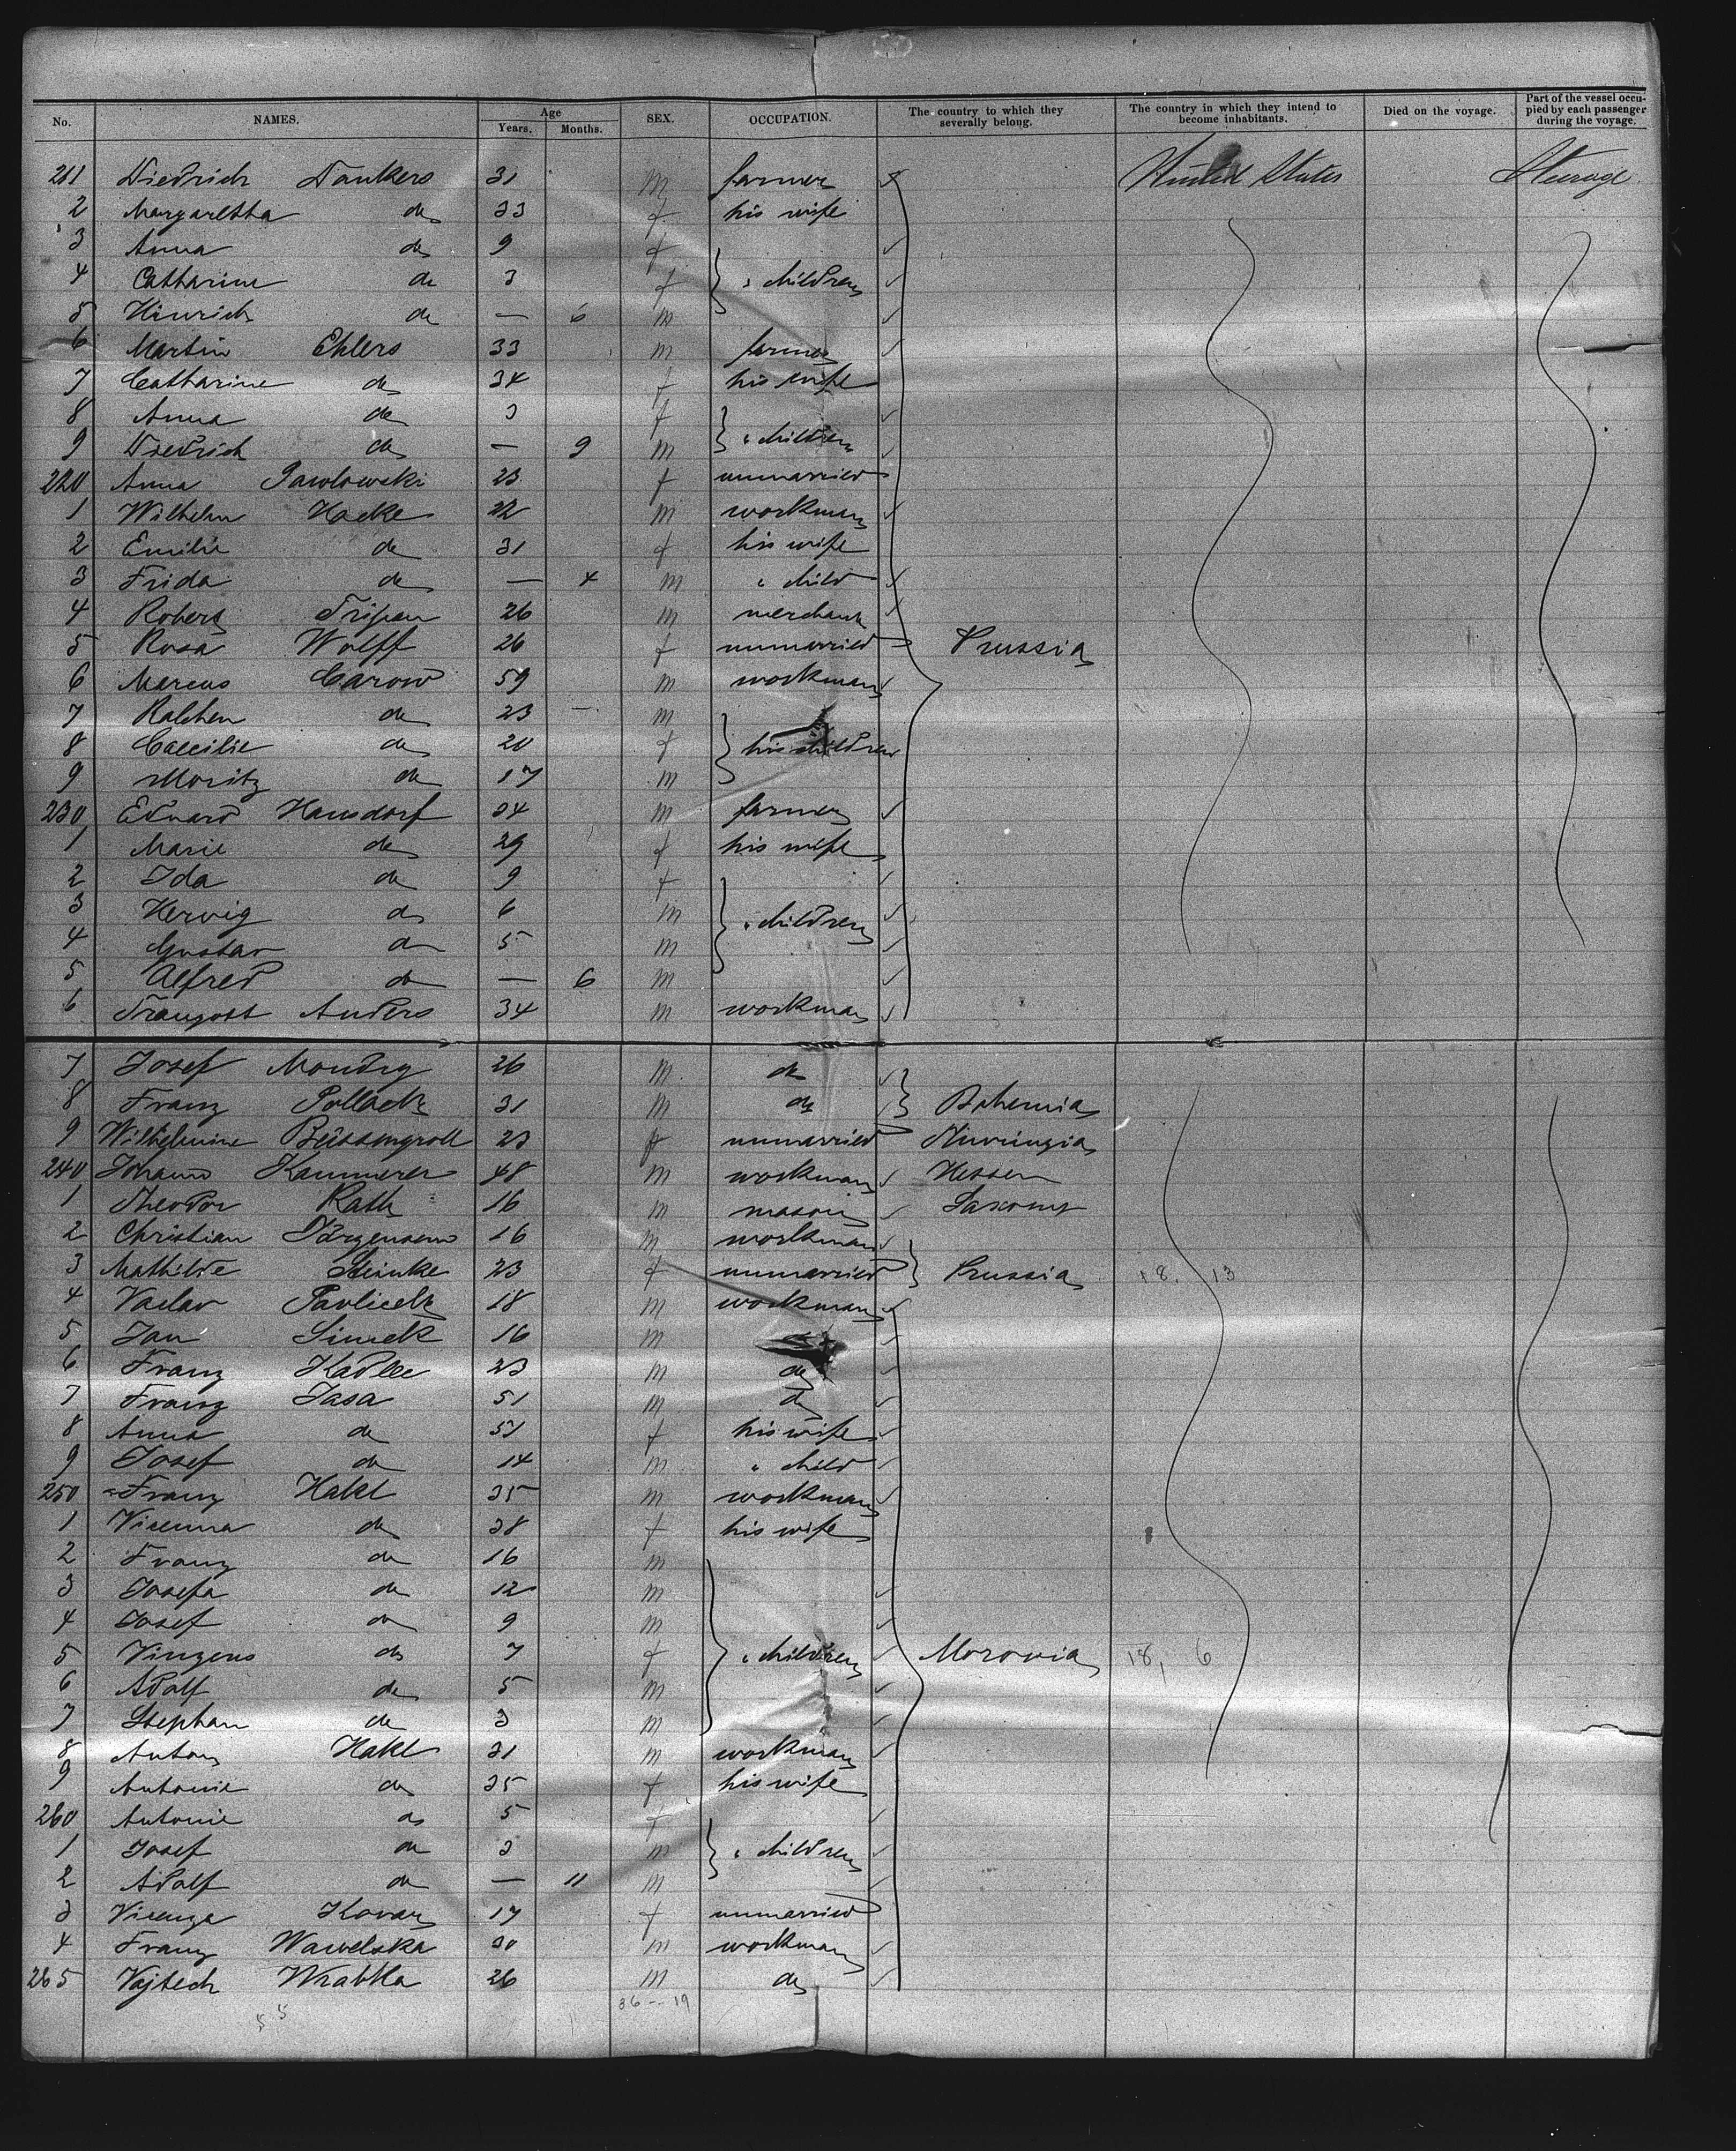 No. NAMES. Age Years. Months. SEX. OCCUPATION. The country to which they severally belong. The country in which they intend to become inhabitants. Died on the voyage. Part of the vessel occupied by each passenger during the voyage.
211 Diedrich Dankers 31 m farmer United States Steerage
2 Margaretha do 33 f his wife
3 Anna do 9 f
4 Catharine do 3 f " children
5 Hinrich do — 6 m
6 Martin Ehlers 33 m farmer
7 Catharine do 34 f his wife
8 Anna do 3 f
9 Diedrich do — 9 m " children
220 Anna Pawlowski 23 f unmarried
1 Wilhelm Hacke 22 m workman
2 Emilie do 31 f his wife
3 Frida do — 4 m " child
4 Robert 26 m merchant
5 Rosa Wolff 26 f unmarried Prussia
6 Marcus Carow 59 m workman
7 do 23 — m
8 Caecilie do 20 f his children
9 Moritz do 17 m
230 Eduard Hansdorf 34 m farmer
1 Marie do 29 f his wife
2 Ida do 9 f
3 Hervig do 6 m " children
4 Gustav do 5 m
5 Alfred do — 6 m
6 Traugott Anders 34 m workman
7 Josef Mondry 26 m do
8 Franz Pollack 31 m do Bohemia
9 Wilhelmine 23 f unmarried
240 Johann Kammerer 48 m workman Hessen
1 Theodor Rath 16 m mason Saxony
2 Christian Jörgensen 16 m workman
3 Mathilde Steinke 23 f unmarried Prussia 18. 13
4 Vaclav Pavlicek 18 m workman
5 Jan Simek 16 m
6 Franz Kadlec 23 m do
7 Franz Jasa 51 m do
8 Anna do 51 f his wife
9 Josef do 14 m " child
250 Franz Hakl 35 m workman
1 do 38 f his wife
2 Franz do 16 m
3 Josefa do 12 m
4 Josef do 9 m
5 Vinzens do 7 f " children Moravia 18, 6
6 Adolf do 5 m
7 Stephan do 3 m
8 Anton Hakl 31 m workman
9 Antonie do 35 f his wife
260 Antonie do 5 f
1 Josef do 3 m " children
2 Adolf do — 11 m
3 Vicenza Kovar 17 f unmarried
4 Franz Wawelska 30 m workman
265 Vojtech Wrabka 26 m do
36 – 19
55